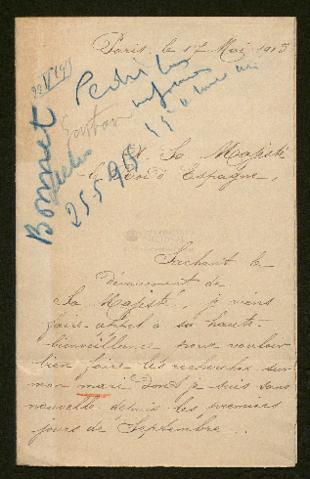 Paris, le 17 Mai 1915
Bonnet
25-5-915
A. Sa Majesté
le Roi d'Espagne,
Sachant le
dévouement de
Sa Majesté je viens
faire appel à sa haute
bienveillance pour vouloir
bien faire les recherches sur
mon mari dont je suis sans
nouvelle depuis les premiers
jours de Septembre..